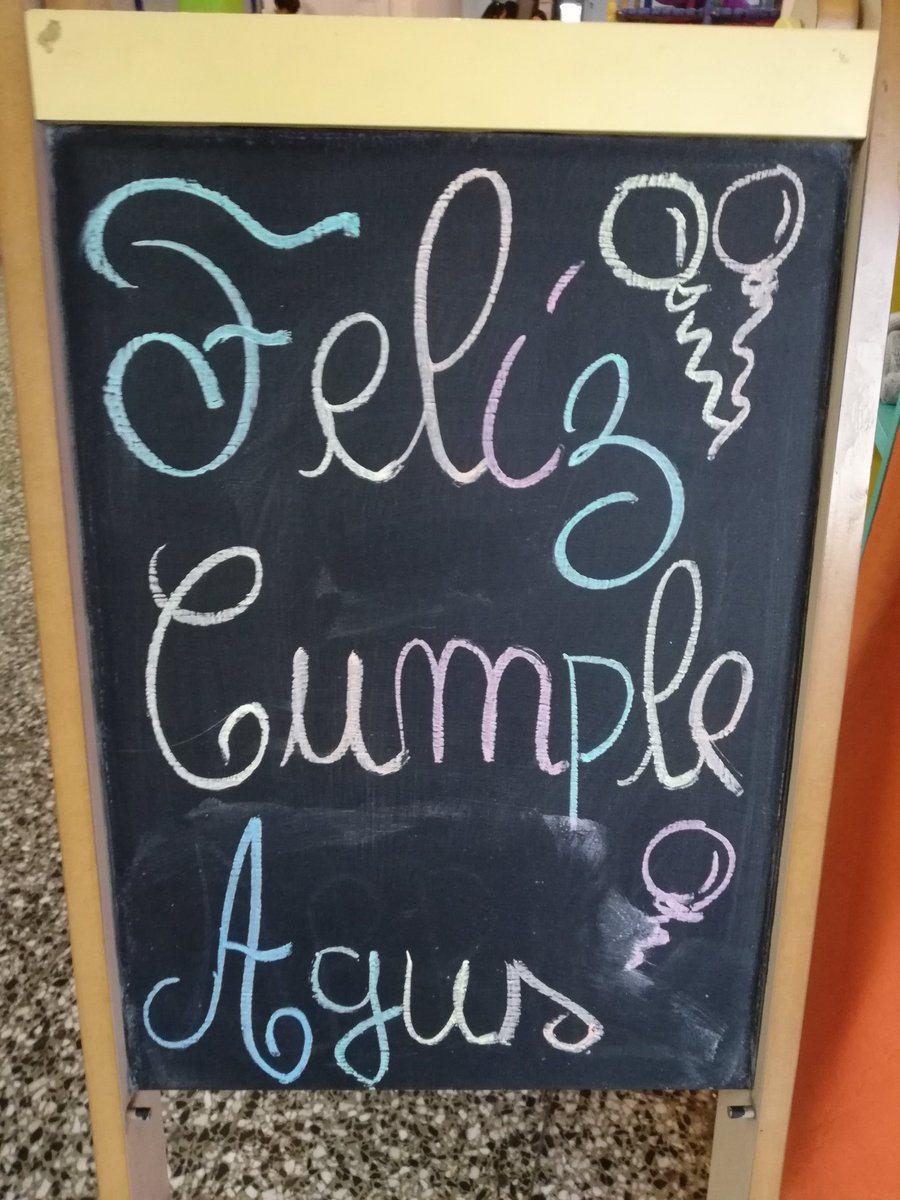 Felíz
Cumple
Agus